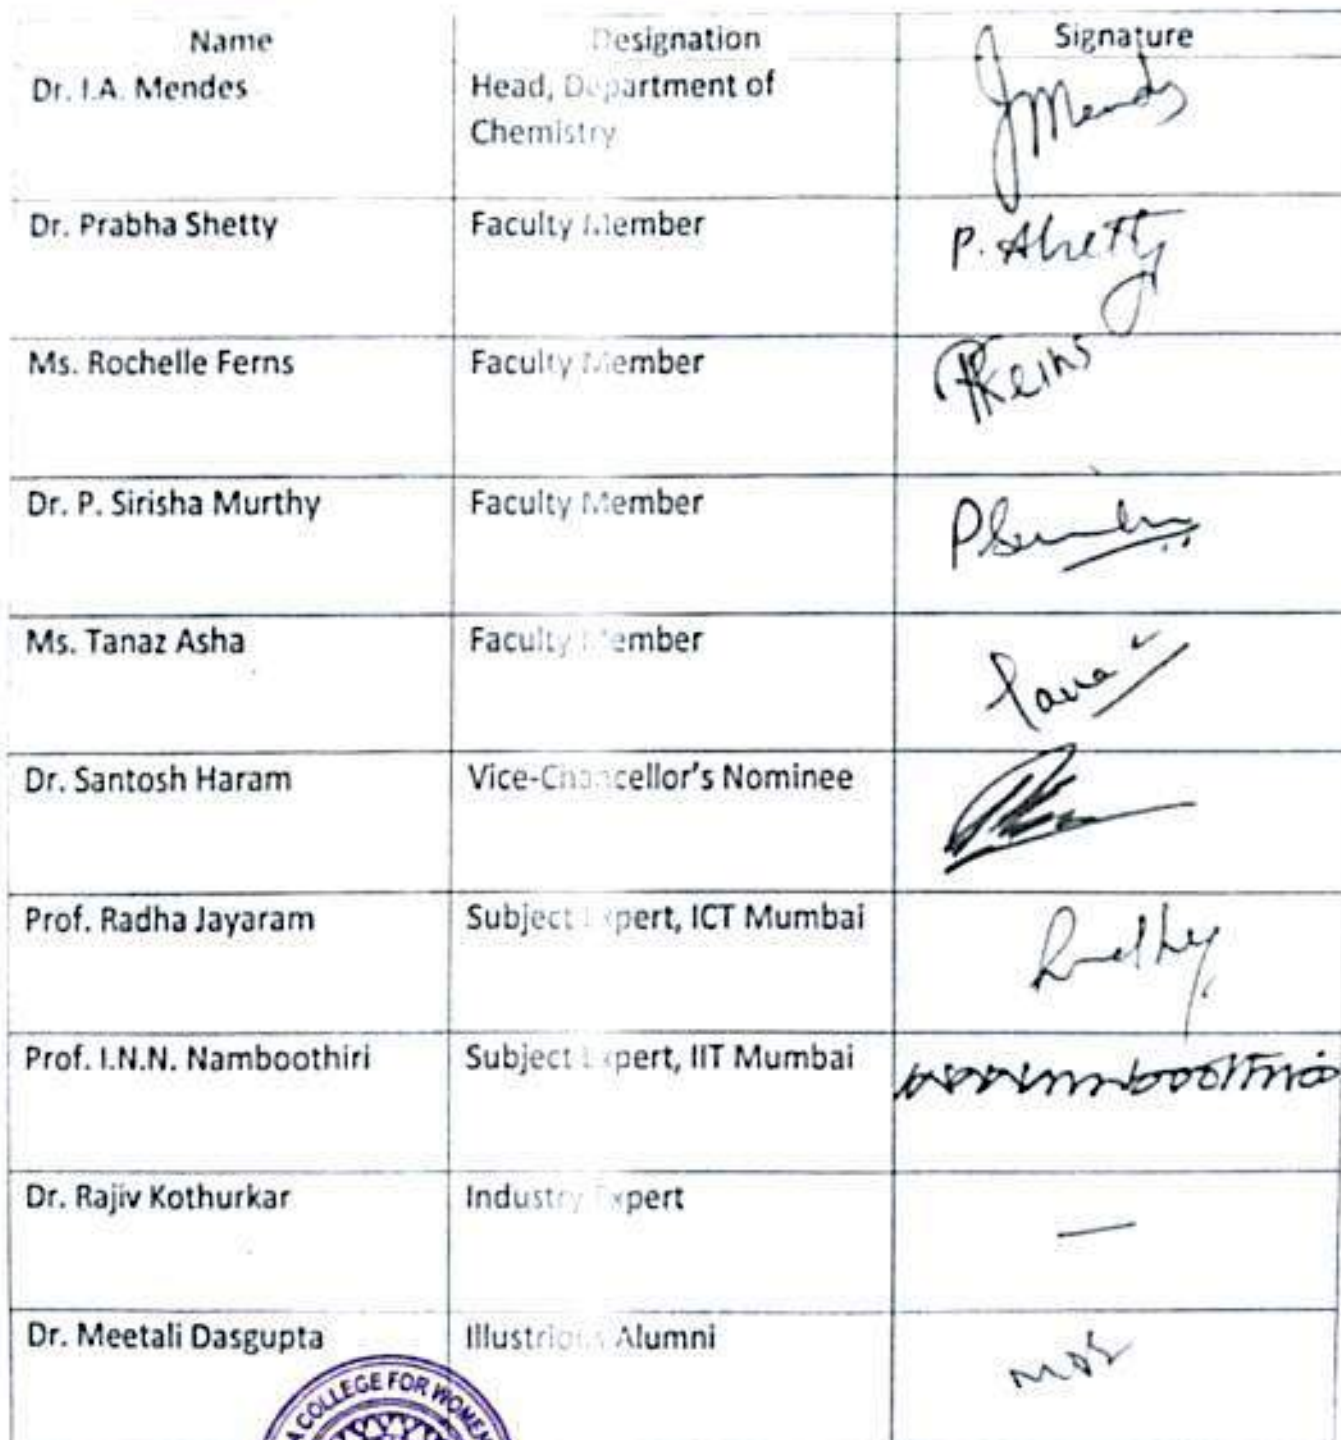 Name Designation Signature
Dr. I.A. Mendes Head, Department of
Chemistry
JMends
Dr. Prabha Shetty Faculty Member P. Shetty
Ms. Rochelle Ferns Faculty Member RFerns
Dr. P. Sirisha Murthy Faculty Member
Ms. Tanaz Asha Faculty Member
Dr. Santosh Haram Vice-Chancellor's Nominee
Prof. Radha Jayaram Subject Expert, ICT Mumbai
Prof. I.N.N. Namboothiri Subject Expert, IIT Mumbai
Dr. Rajiv Kothurkar Industry Expert —
Dr. Meetali Dasgupta Illustrious Alumni
A COLLEGE FOR WOMEN